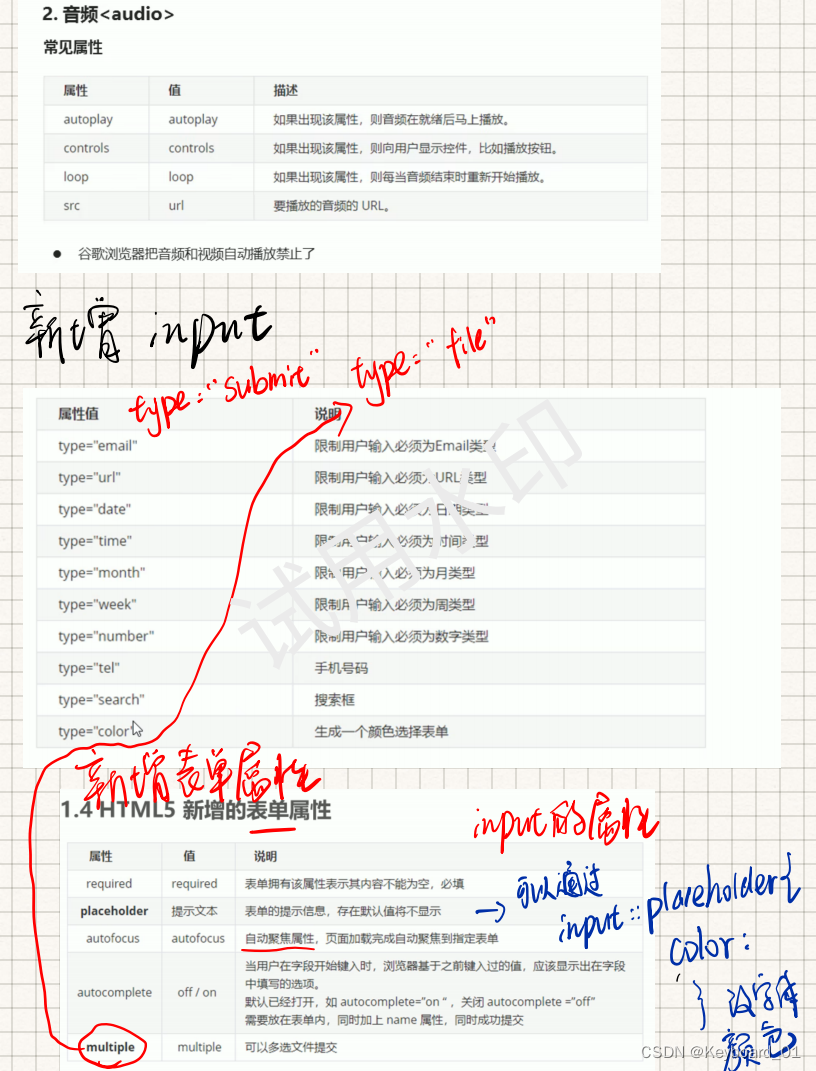 2. 音频<audio>
常见属性
属性 值 描述
autoplay autoplay 如果出现该属性，则音频在就绪后马上播放。
controls controls 如果出现该属性，则向用户显示控件，比如播放按钮。
loop loop 如果出现该属性，则每当音频结束时重新开始播放。
src url 要播放的音频的 URL。
● 谷歌浏览器把音频和视频自动播放禁止了
新增 input
type="submit" type="file"
属性值 说明
type="email" 限制用户输入必须为Email类型
type="url" 限制用户输入必须为URL类型
type="date" 限制用户输入必须为日期类型
type="time" 限制用户输入必须为时间类型
type="month" 限制用户输入必须为月类型
type="week" 限制用户输入必须为周类型
type="number" 限制用户输入必须为数字类型
type="tel" 手机号码
type="search" 搜索框
type="color" 生成一个颜色选择表单
试用水印
新增表单属性
1.4 HTML5 新增的表单属性
input的属性
属性 值 说明
required required 表单拥有该属性表示其内容不能为空，必填
placeholder 提示文本 表单的提示信息，存在默认值将不显示
autofocus autofocus 自动聚焦属性，页面加载完成自动聚焦到指定表单
autocomplete off / on 当用户在字段开始键入时，浏览器基于之前键入过的值，应该显示出在字段
中填写的选项。
默认已经打开，如 autocomplete="on "，关闭 autocomplete ="off"
需要放在表单内，同时加上 name 属性，同时成功提交
multiple multiple 可以多选文件提交
可以通过
input::placeholder{
color:
} 改字体
颜色
CSDN @Keyboard_01